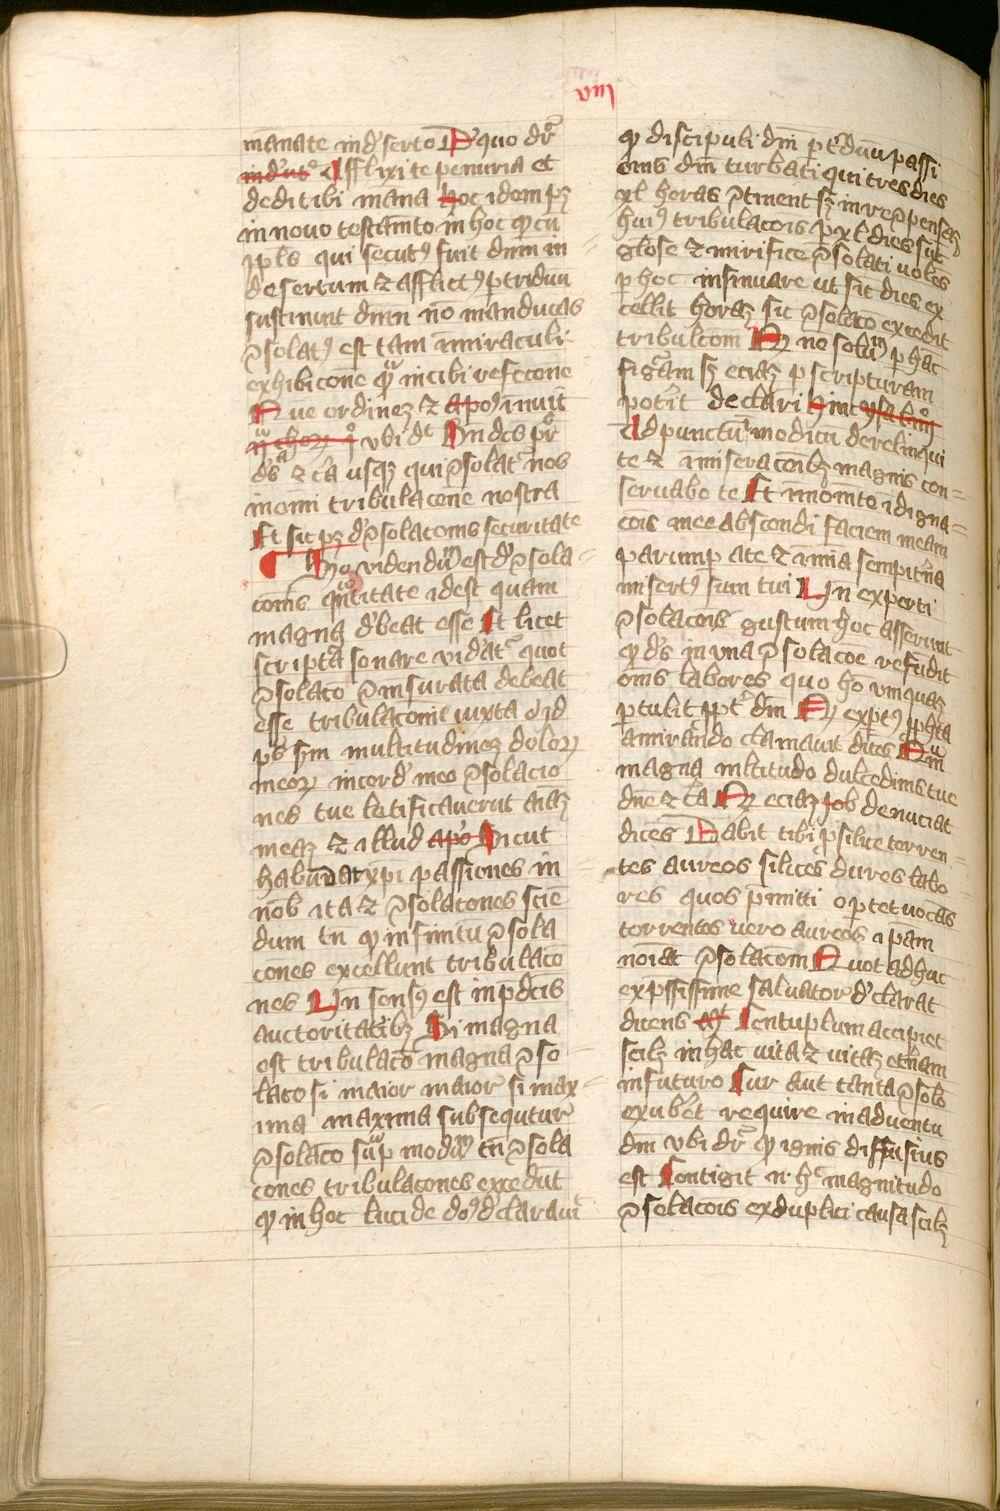 viii
mānate in d'serto De quo dr̄
in deut° Afflixi te penuria et
dedit tibi māna Hoc idem pꝫ
in novo testām̄to in hoc ꝙ cū
ppl's qui secutꝰ fuit dnm̄ in
desertum ⁊ afflictꝰ ꝑ triduū
sustinuit dnm̄ nō manducās
ꝯsolatꝰ est tam ī miraculi
exhibicōne ꝙͣ in cibi refectōne
Que ordinez ⁊ apo⁹ īnuit
ubi dt Bn̄dcs
d's ⁊ cͣ usqꝫ qui ꝯsolatͬ nos
in om̄i tribulacōne nostra
Et sic pꝫ d' ꝯsolacōnis securitate
Sc̄do videndū est d' ꝯsola
cōnis qͣntitate id est quam
magna d'beat esse Et licet
scripta sonare videatͬ quot
ꝯsolaco ꝯmensurata debeat
esse tribulaconi iuxta id
ps s̄m multitudinez dolorꝝ
meorꝝ in cord' meo ꝯsolacio
nes tue letificaverūt aīaꝫ
meaꝫ ⁊ illud apo Sicut
habūdāt xp̄i passiones in
nob̄ ita ⁊ ꝯsolacōnes sciē
dum tn̄ ꝙ in infinitū ꝯsola
cōnes excellunt tribulacō
nes Un̄ sensꝰ est in p̄dcis
auctoritatibꝫ Si magna
est tribulaco magna ꝯso
laco si maior maior si max
ima maxima subsequtur
ꝯsolaco suꝑ modū tn̄ ꝯsola
cōnes tribulacōnes excedūt
ꝙ in hoc lucide dn̄s d'claravit
ꝙ discipuli dnī ꝓpt' dnī passi
om̄s dnī turbati qui tres dies
xl horas ꝯtinent sꝫ in recōpensaꝫ
huiꝰ tribulacōis ꝑ xl dies sūt
gl'ose ⁊ mirifice ꝯsolati volēs
ꝑ hoc insinuare ut sic dies ex
cellit horaꝫ sic ꝯsolacō excedit
tribulacōm Nō solū ꝑ hāc
figͣam sꝫ eciaꝫ ꝑ scripturam
potit declari
Ad punctū ī modico dereliqui
te ⁊ ī miseracōibꝫ magnis con
servabo te Et ī mom̄to īdigna
cōis mee abscondi faciem meam
parump a te ⁊ ī mīa sempit̄na
misertꝰ sum tui Un̄ experti
ꝯsolacōis gustum hoc asserunt
ꝙ d's in una ꝯsolacōe refudit
om̄s labores quos hō vnquaꝫ
ꝑtulit ꝓpt' dnm̄ exp̄tꝰ ꝓph̄ta
amirando clamavit dicēs Quā
magna m̄ltitudo dulcedinis tue
dn̄e ⁊ cͣ eciaꝫ Job denuciat
dicēs Dabit tibi ꝓ silice torren
tes aureos silices duros labo
res quos p̄mitti oportet vocās
torrentes vero aureos ip̄am
noīat ꝯsolacōm Quot adhuc
exp̄ssissime salvator d'clarat
dicens Centuplum accipiet
scilꝫ in hac vita ⁊ vitaꝫ et'nam
in futuro Cur aut tanta ꝯsolo
exub'et require in adventu
dnī ubi dr̄ ꝙ ignis diffusius
est Contigit n. hͨ magnitudo
ꝯsolacōis ex duplici causa scilꝫ